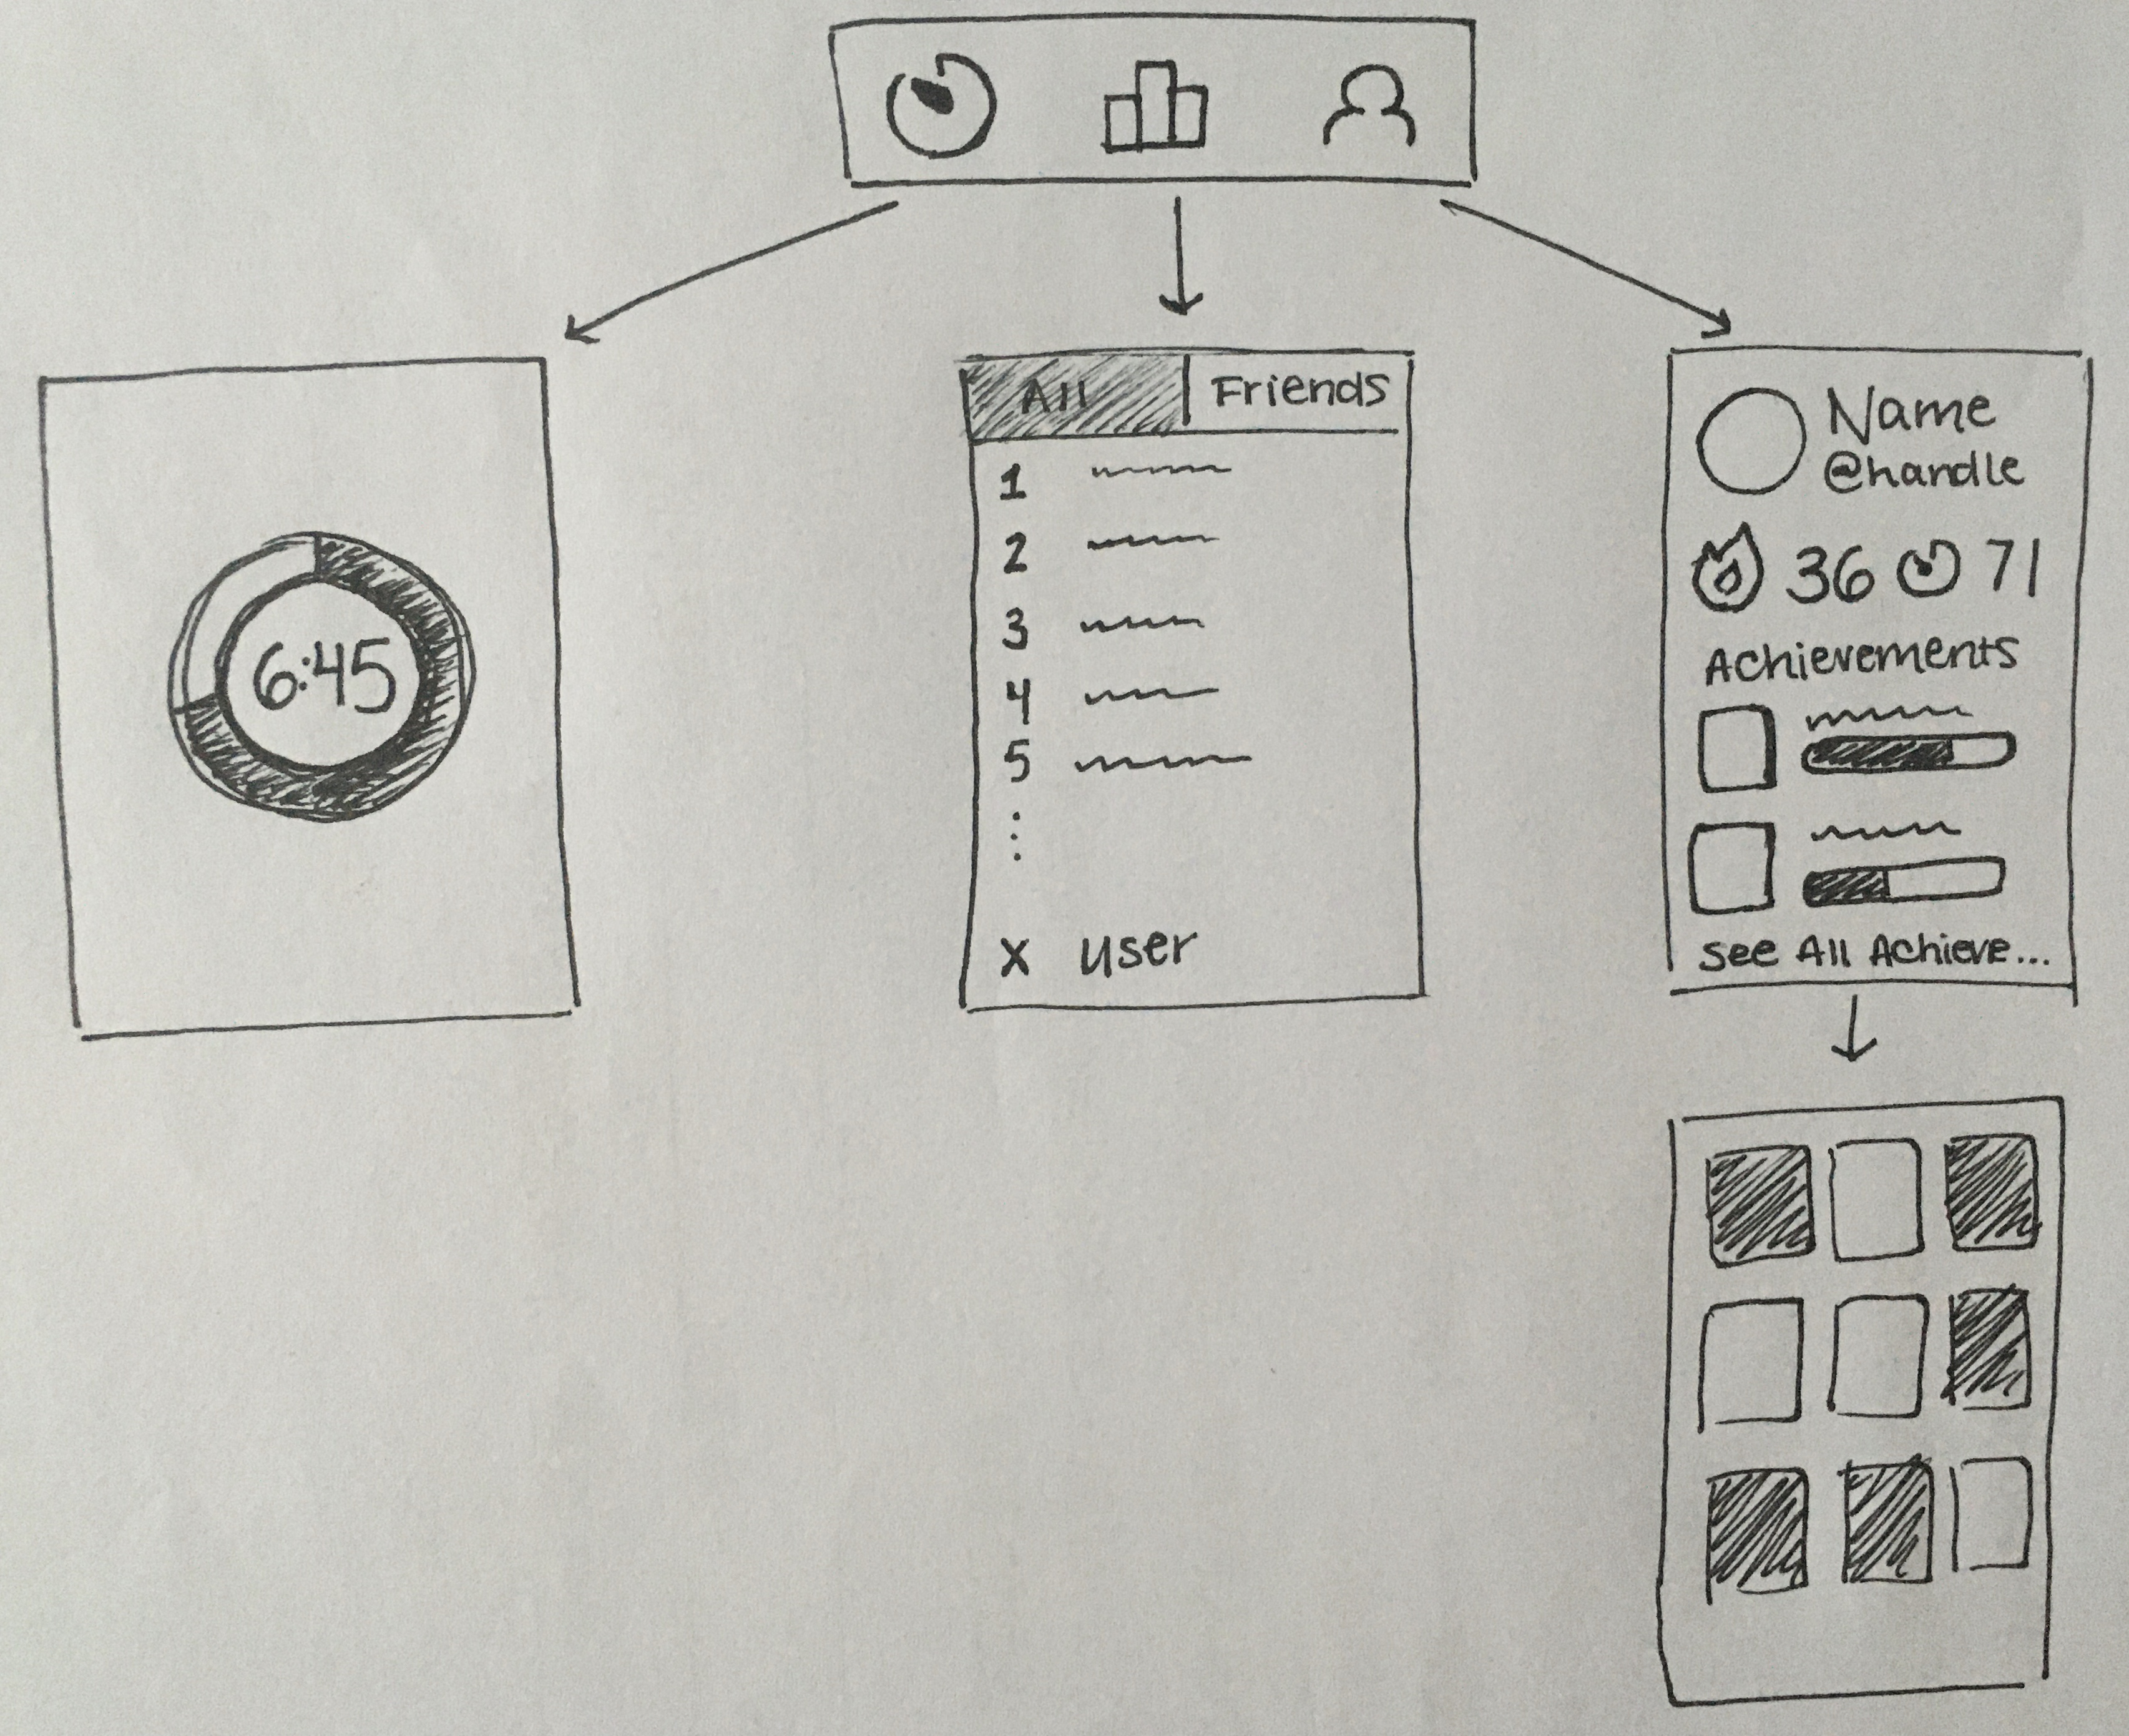 6:45
All Friends
1
2
3
4
5
X user
Name
@handle
36 71
Achievements
see All Achieve...